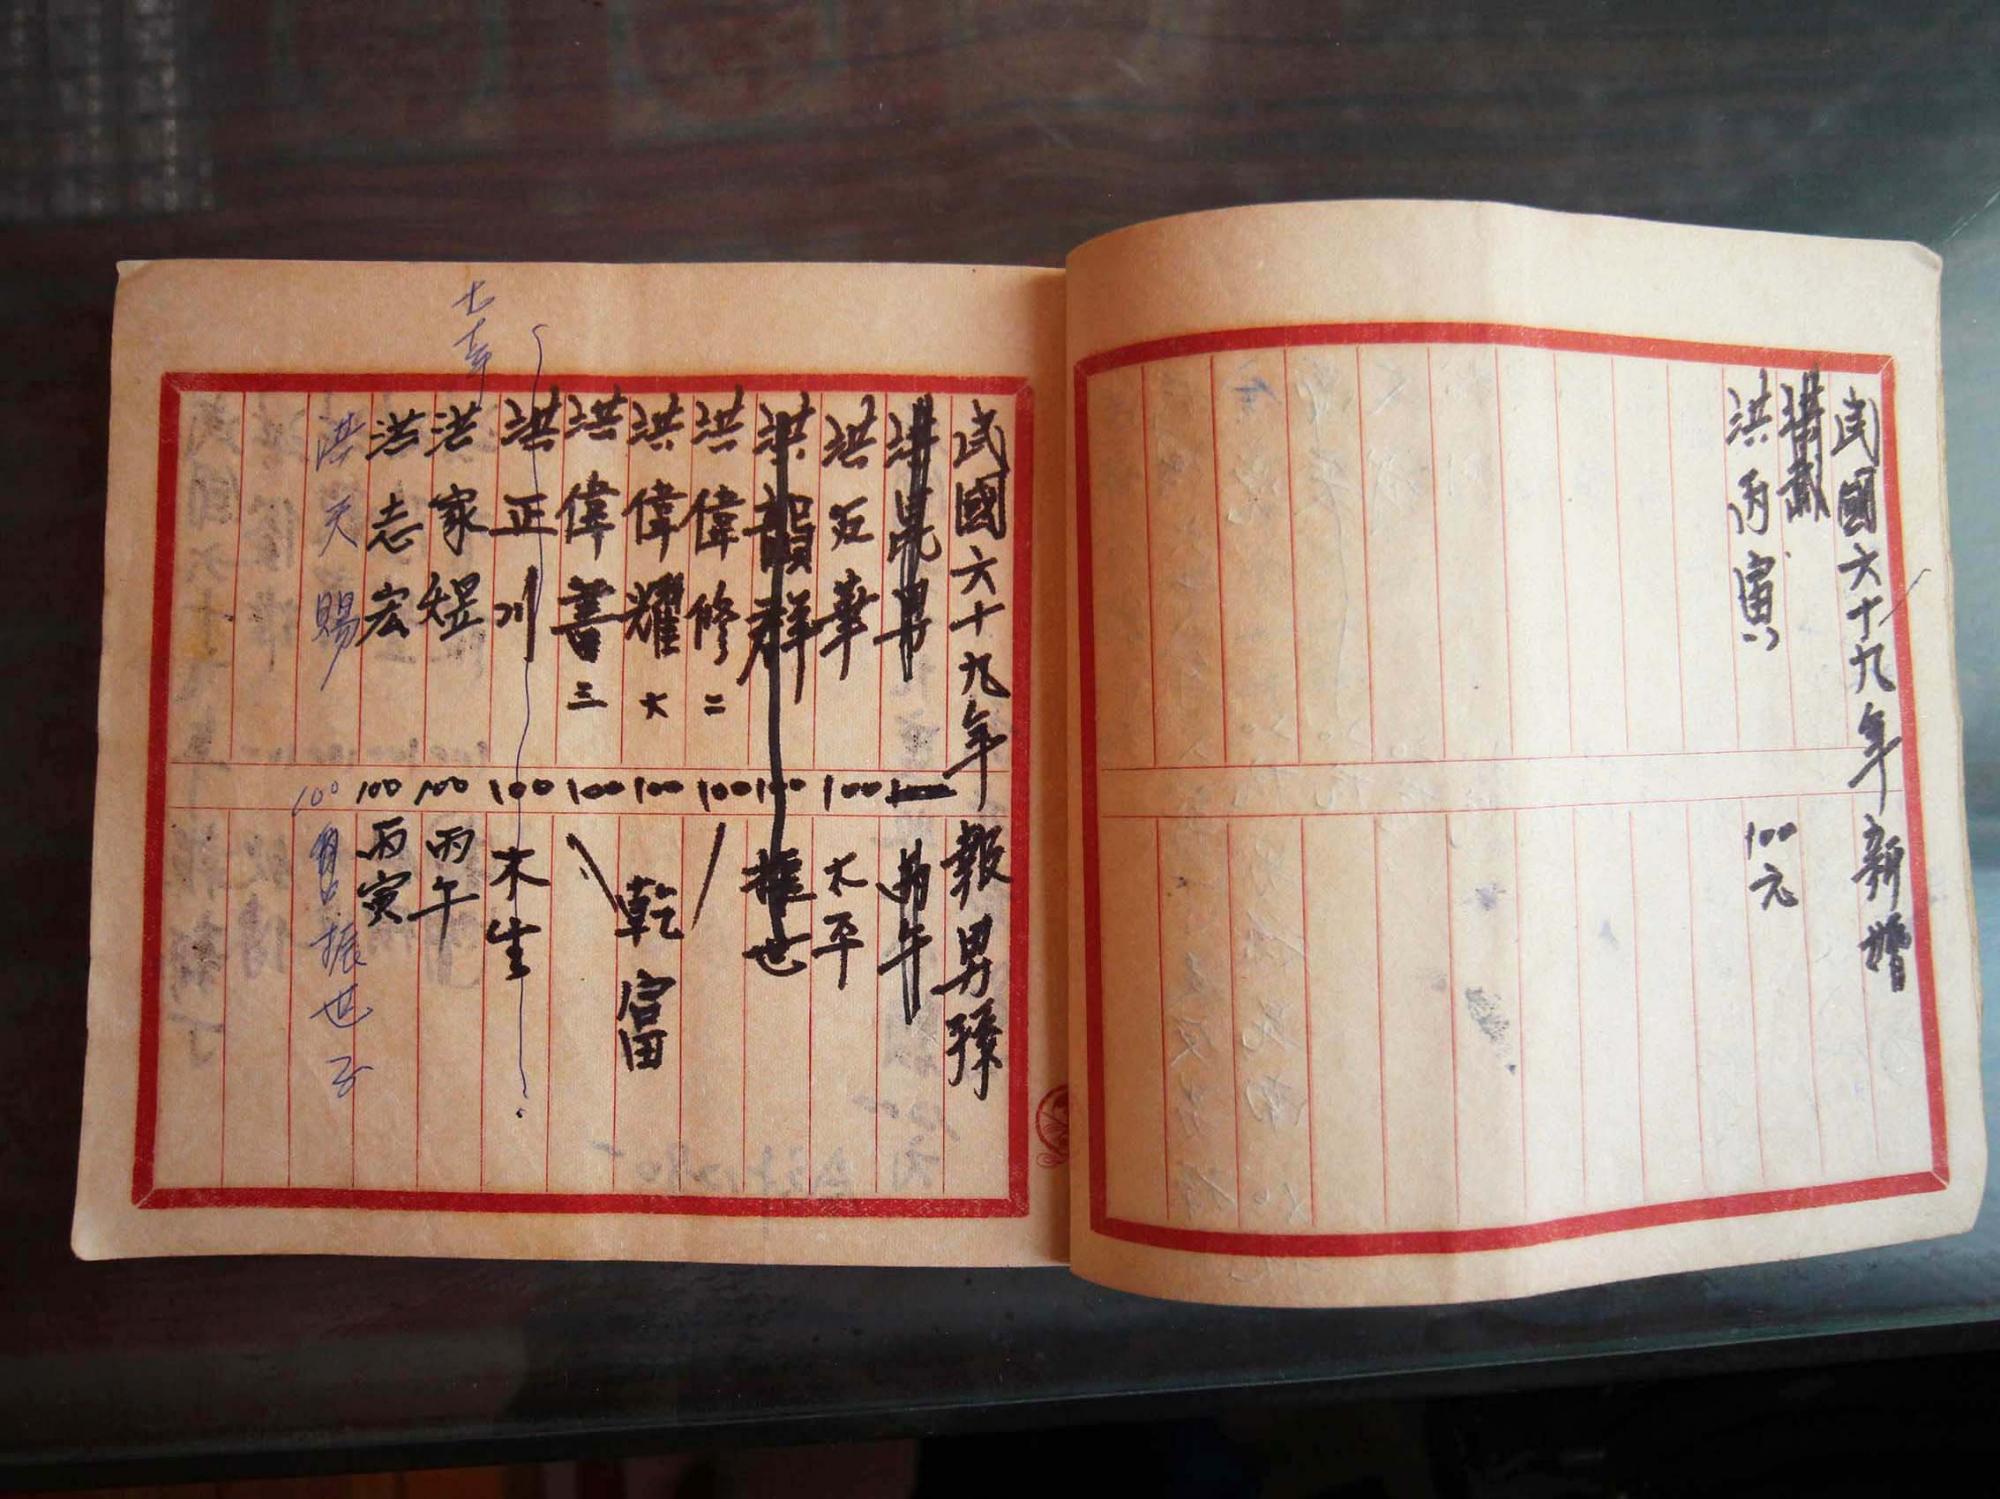 民國六十九年新婚
洪丙寅 100元
民國六十九年 報男孫
洪昆男 丙午
洪百華 100 太平
洪韻群 100 振世
洪偉修 二 100
洪偉耀 大 100 乾富
洪偉書 三 100
洪正川 100 木生
七十年
洪家煜 100 丙午
洪志宏 100 丙寅
洪天賜 100 振世子